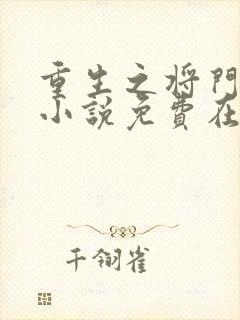 重生之将門
小説免費在
千翎雀